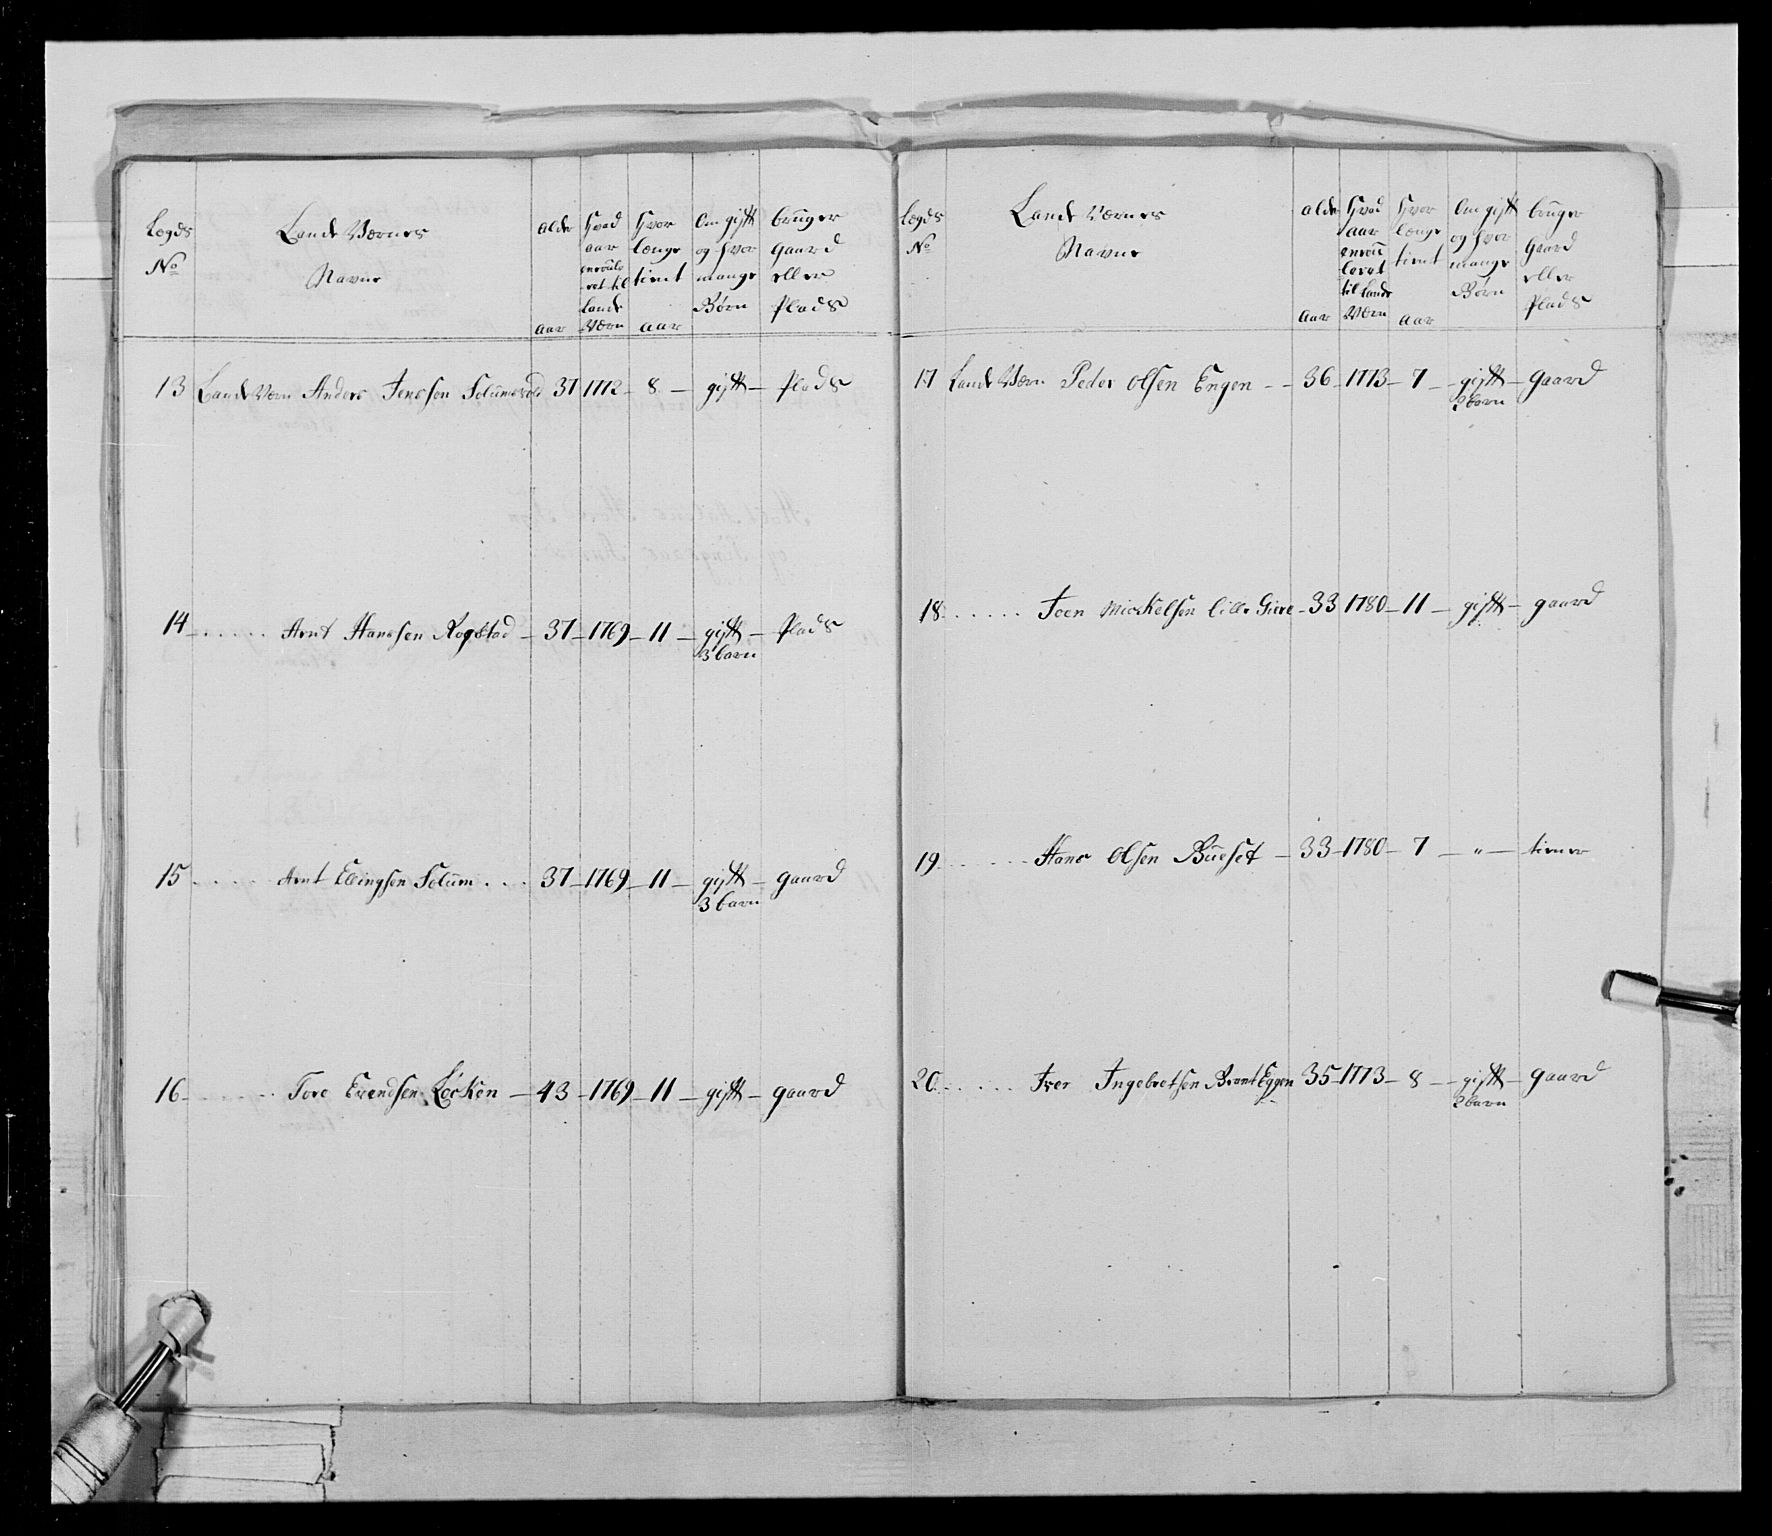 Lægds No
Land Værnes Navne
alder aar
Hvad aar enroulleret til Land Værn
Hvor længe tient aar
Om gift og hvor mange Børn
bruger Gaard eller Plads
13 Land Værn Anders Jenssen 37 1772 - 8 - gift - Plads
14 - . . . . . Arnt Hanssen Rogstad - 37 - 1769 - 11 - gift - Plads
3 barn
15 . . . . . Arnt Ellingsen Solum . . . 37 - 1769 - 11 - gift - gaard
3 barn
16 - . . . . . Tore Evendsen Løcken - 43 - 1769 - 11 - gift - gaard
Lægds No
Land Værnes Navne
alder aar
Hvad aar enroulleret til Land Værn
Hvor længe tient aar
Om gift og hvor mange Børn
bruger Gaard eller Plads
17 Land Værn Peder Olsen Engen - - 36 - 1773 - 7 - gift - gaard
2 barn
18 . . . . . Joen Mickelsen Lille - 33 1780 - 11 - gift - gaard
19 . . . . . Hans Olsen Bueset - 33 - 1780 - 7 - " - tiener
20 . . . . . Iver Ingebretsen Brandt Eggen 35 - 1773 - 8 - gift - gaard
2 barn